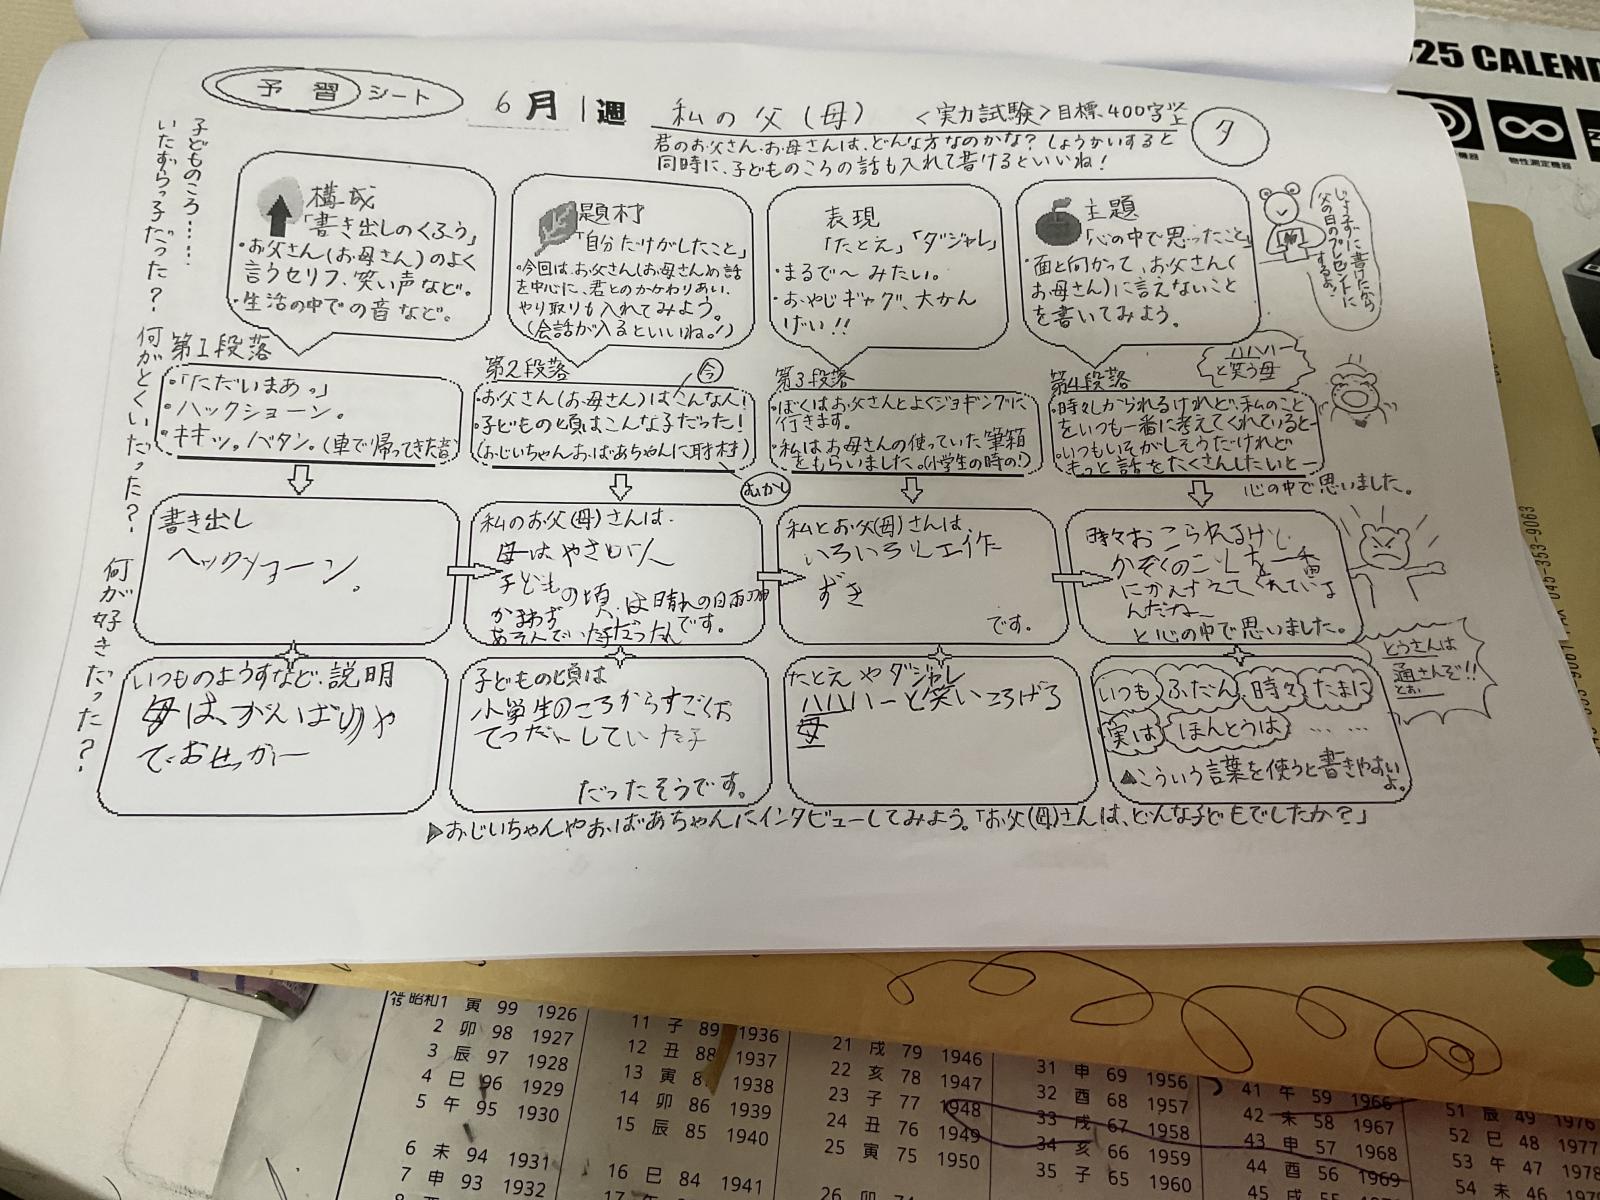 予習シート
6月1週
私の父(母)
<実力試験>目標、400字以上
夕
君のお父さん、お母さんは、どんな方なのかな?しょうかいすると
同時に、子どものころの話も入れて書けるといいね!
子どものころ……
いたずらっ子だった?何がとくいだった?何が好きだった?
構成
「書き出しのくふう」
・お父さん(お母さん)のよく
言うセリフ、笑い声など。
・生活の中での音など。
題材
「自分だけがしたこと」
・今回は、お父さん(お母さん)の話
を中心に、君とのかかわりあい、
やり取りも入れてみよう。
(会話が入るといいね。!)
表現
「たとえ」「ダジャレ」
・まるで〜みたい。
・おやじギャグ、大かん
げい!!
主題
「心の中で思ったこと」
・面と向かって、お父さん(
お母さん)に言えないこと
を書いてみよう。
じょうずに書けたら
父の日のプレゼントに
するよ!
第1段落
・「ただいまあ。」
・ハックショーン。
・キキッ。バタン。(車で帰ってきた音)
第2段落
今
・お父さん(お母さん)はこんな人!
・子どもの頃はこんな子だった!
(おじいちゃんおばあちゃんに取材)
むかし
第3段落
・ぼくはお父さんとよくジョギングに
行きます。
・私はお母さんの使っていた筆箱
をもらいました。(小学生の時の!)
第4段落
ハハハハ
と笑う母
・時々しかられるけれど、私のこと
をいつも一番に考えてくれていると―
・いつもいそがしそうだけれど
もっと話をたくさんしたいと―
心の中で思いました。
書き出し
ヘックショーン。
私のお父(母)さんは、
母はやさしい人
子どもの頃は晴れの日雨の日
かまわず
あそんでいた子だったんです。
私とお父(母)さんは、
いろいろし工作
ずき
です。
時々おこられるけど
かぞくのことを一番
にかんがえてくれているよ
んだね―
と心の中で思いました。
いつものようすなど、説明
母は、がんばりや
で、おせっかー
子どもの頃は
小学生のころからすごくお
てつだいしていた子
だったそうです。
たとえやダジャレ
ハハハーと笑いころげる
母
いつも ふだん 時々 たまに
実は ほんとうは ……
▲こういう言葉を使うと書きやすいよ。
とうさんは
通さんぞ!!
とお
▶おじいちゃんやおばあちゃんにインタビューしてみよう。「お父(母)さんは、どんな子どもでしたか?」
CALEND
物性測定機器
045-353-9063
昭和1 寅 99 1926
2 卯 98 1927
3 辰 97 1928
4 巳 96 1929
5 午 95 1930
6 未 94 1931
7 申 93 1932
11 子 89 1936
12 丑 88 1937
13 寅 1938
14 卯 86 1939
15 辰 85 1940
16 巳 84 1941
21 戌 79 1946
22 亥 78 1947
23 子 77 1948
24 丑 76 1949
25 寅 75 1950
31 申 69 1956
32 酉 68 1957
33 戌 67 1958
34 亥 66 1959
35 子 65 1960
41 午 59 1966
42 未 58 1967
43 申 57 1968
44 酉 56 1969
51 辰 49 1976
52 巳 48 1977
53 午 47 1978